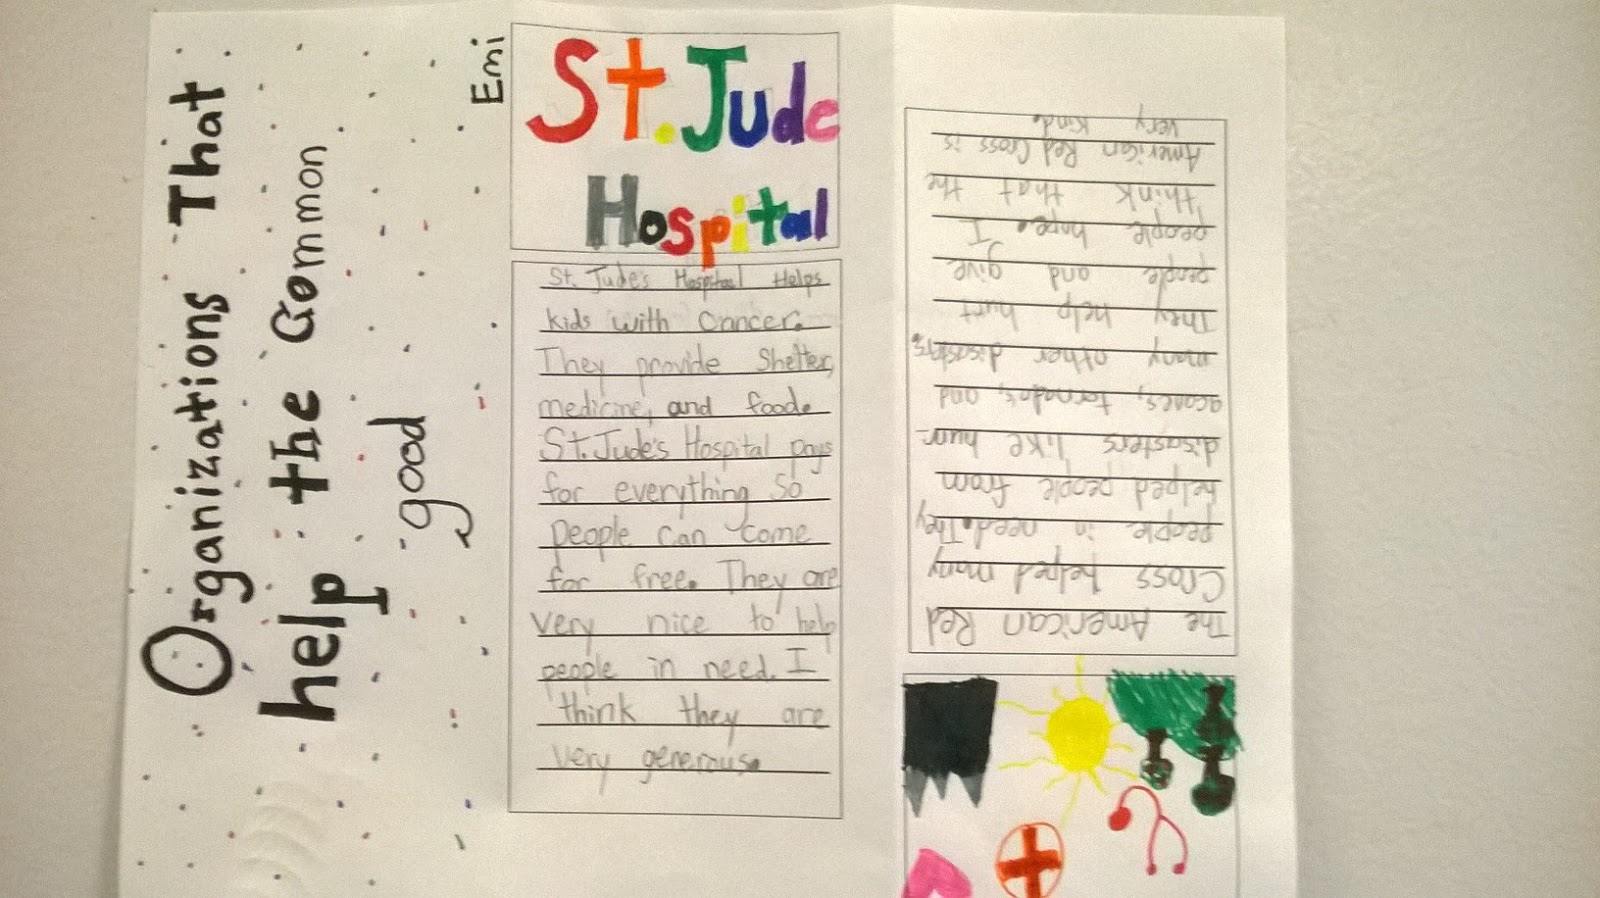 Organizations That
help the Common
good
Emi
St. Jude
Hospital
St. Jude's Hospital Helps
kids with cancer.
They provide shelter,
medicine, and food.
St. Jude's Hospital pays
for everything so
people can come
for free. They are
very nice to help
people in need. I
think they are
very generous.
The American Red
Cross helped many
people in need. They
helped people from
disasters like hurr-
acanes, tornado's, and
many other disasters.
They help hurt
people and give
people hope. I
think that the
American Red Cross is
very kind.